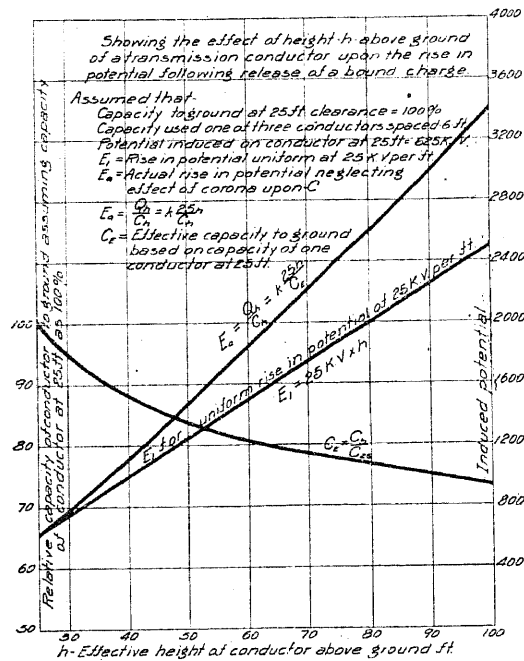 Showing the effect of height-h-above ground
of a transmission conductor upon the rise in
potential following release of a bound charge.
Assumed that-
Capacity to ground at 25 ft clearance = 100%
Capacity used one of three conductors spaced 6 ft
Potential induced on conductor at 25ft = 625 K.V.
E₁ = Rise in potential uniform at 25 K V per ft
Eₐ = Actual rise in potential neglecting
effect of corona upon-C
Eₐ = Qₕ/Cₕ = k 25h/Cₕ
C_E = Effective capacity to ground
based on capacity of one
conductor at 25 ft.
Eₐ = Qₕ/Cₕ = k 25h/C_E
E₁ for uniform rise in potential of 25 KV per ft.
E₁ = 25 KV x h
C_E = Cₕ/C₂₅
Relative capacity of conductor to ground assuming capacity
of conductor at 25 ft as 100%
100
90
80
70
60
50
Induced potential
4000
3600
3200
2800
2400
2000
1600
1200
800
400
30 40 50 60 70 80 90 100
h-Effective height of conductor above ground ft.